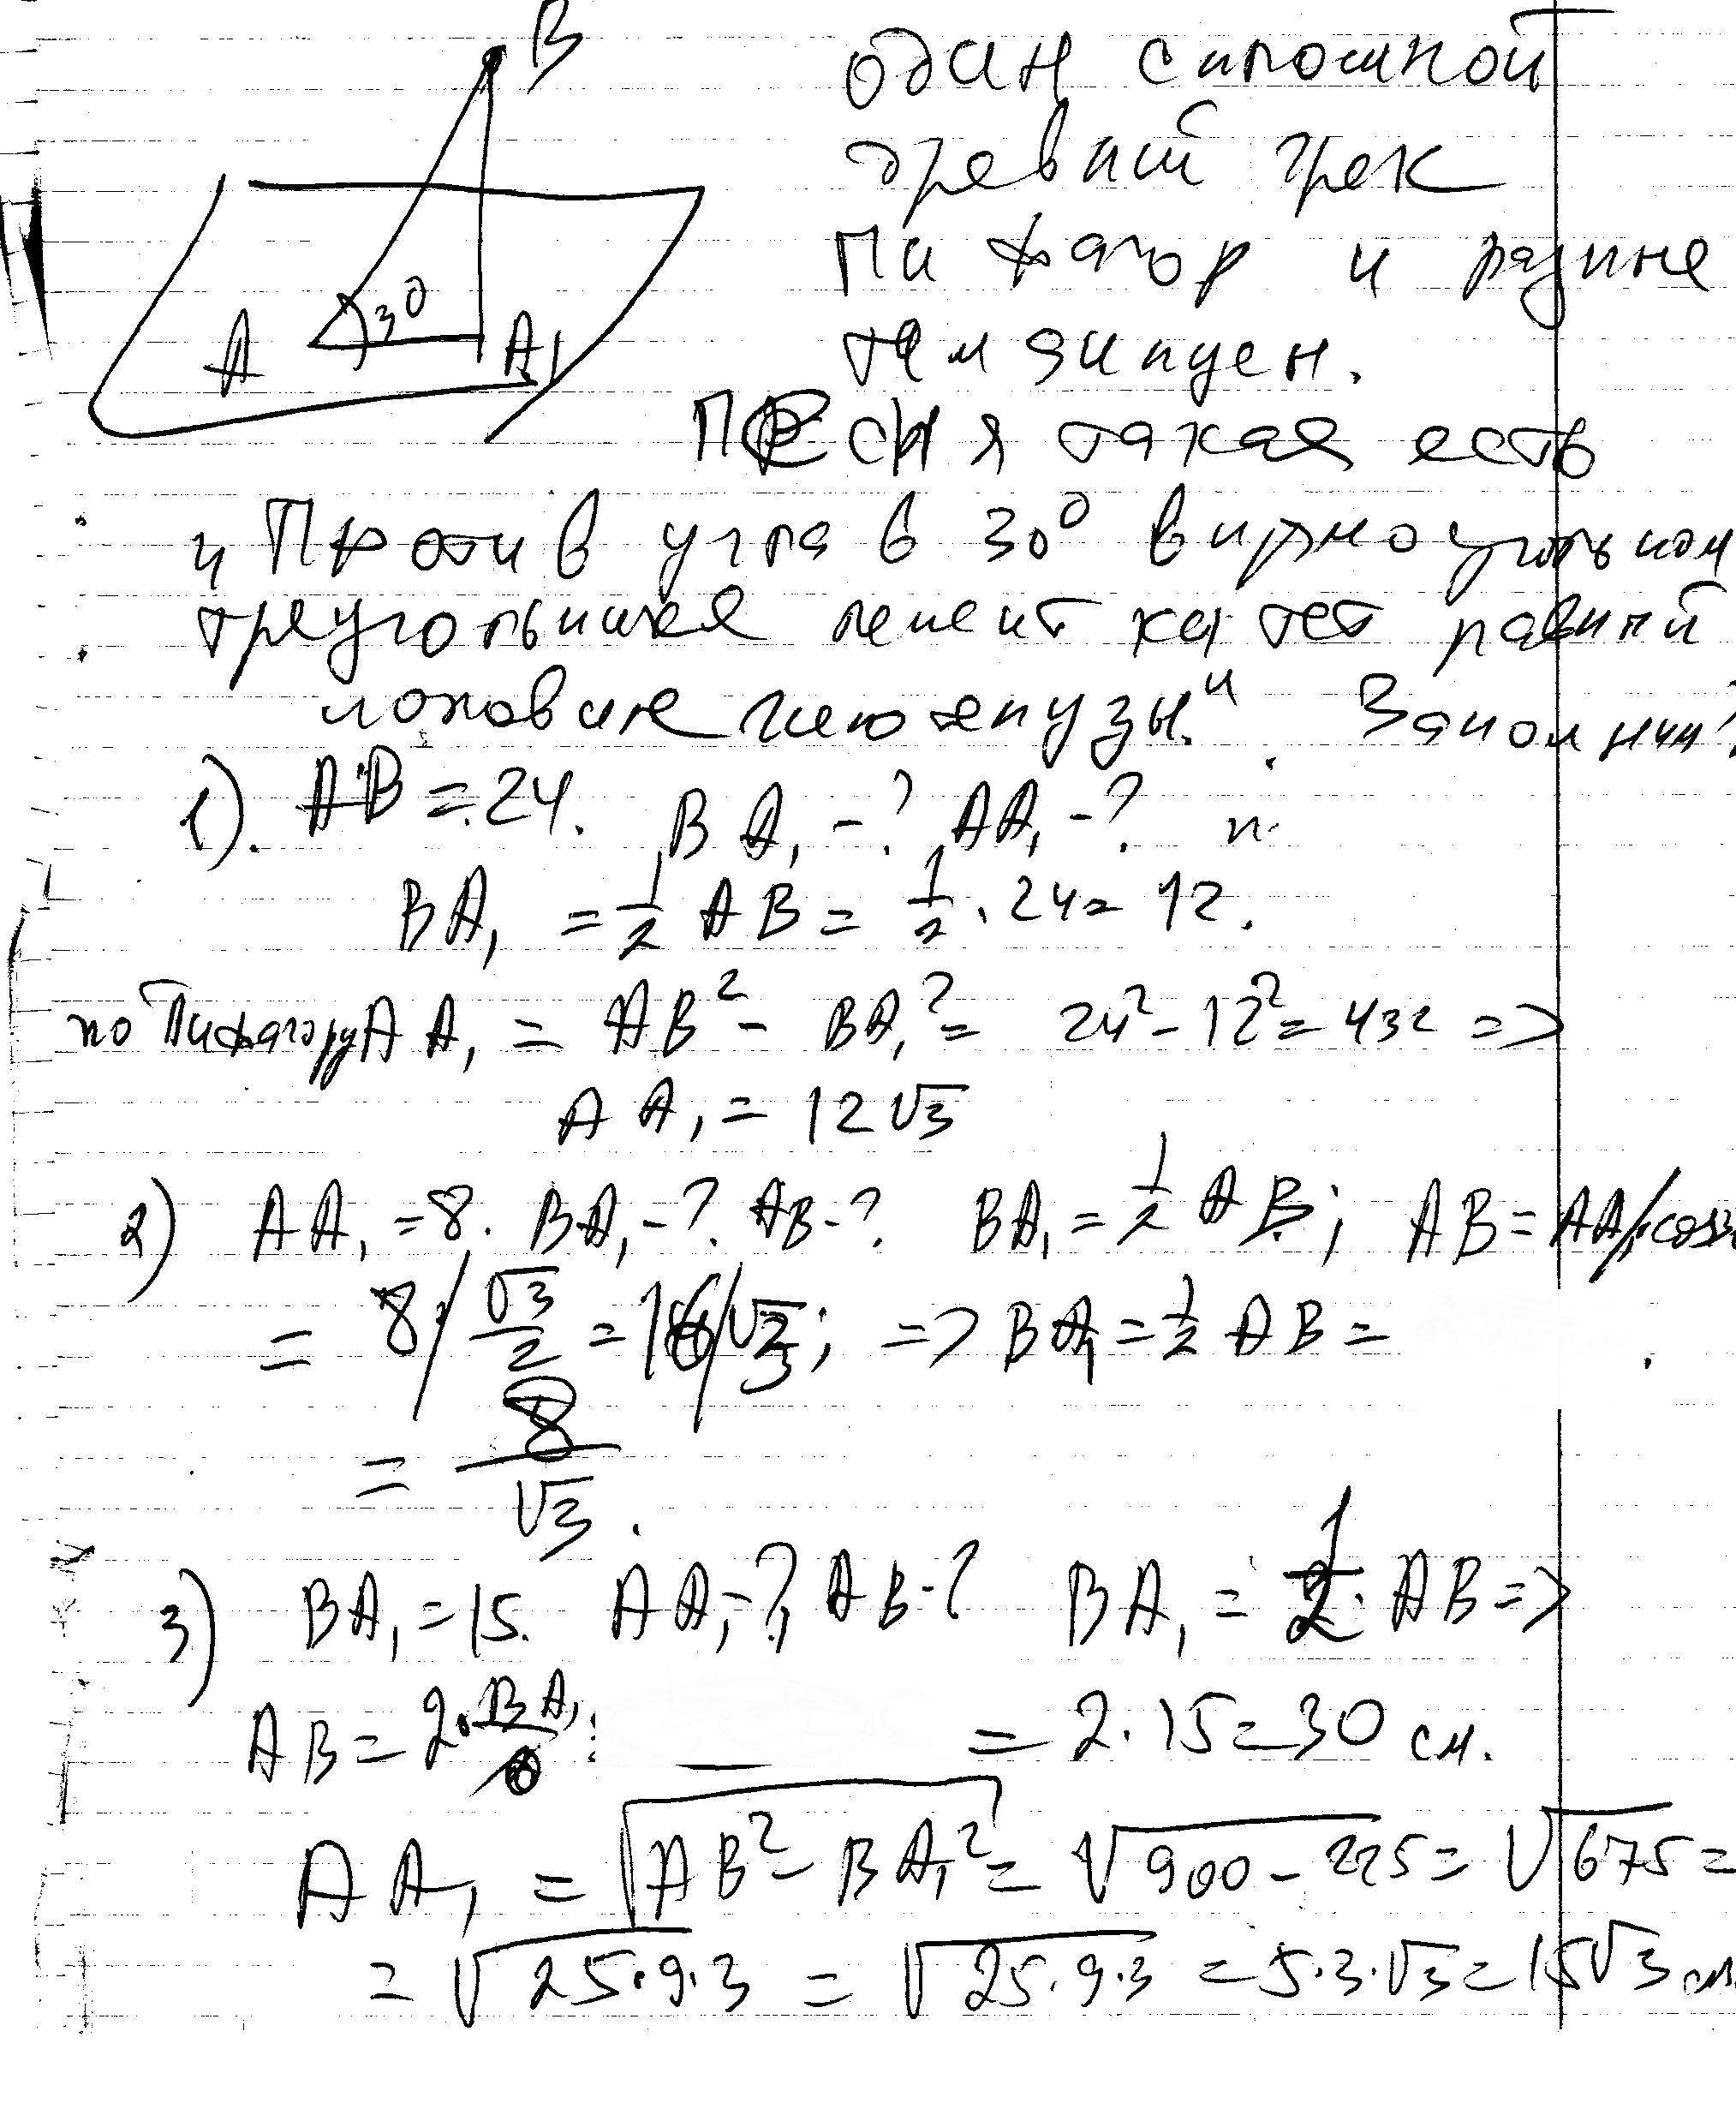 B
30
A
A₁
один сплошной
древний грек
Пифагор и
Песня такая есть
и Против угла в 30⁰ в прямоугольном
треугольнике лежит катет равный
половине гипотенузы". Запомним
1). AB = 24. BA₁ - ? AA₁ - ?
BA₁ = 1/2 AB = 1/2 · 24 = 12.
по Пифагору AA₁ = AB² - BA₁² = 24² - 12² = 432 =>
AA₁ = 12√3
2) AA₁ = 8. BA₁ - ? AB - ? BA₁ = 1/2 AB; AB = AA₁/cos
= 8/ √3/2 = 16/√3; => BA₁ = 1/2 AB =
= 8/√3.
3) BA₁ = 15. AA₁ - ?, AB - ? BA₁ = 1/2 · AB =>
AB = 2 · BA₁ = 2 · 15 = 30 см.
AA₁ = √AB² - BA₁² = √900 - 225 = √675 =
= √25·9·3 = √25·9·3 = 5·3·√3 = 15√3 см